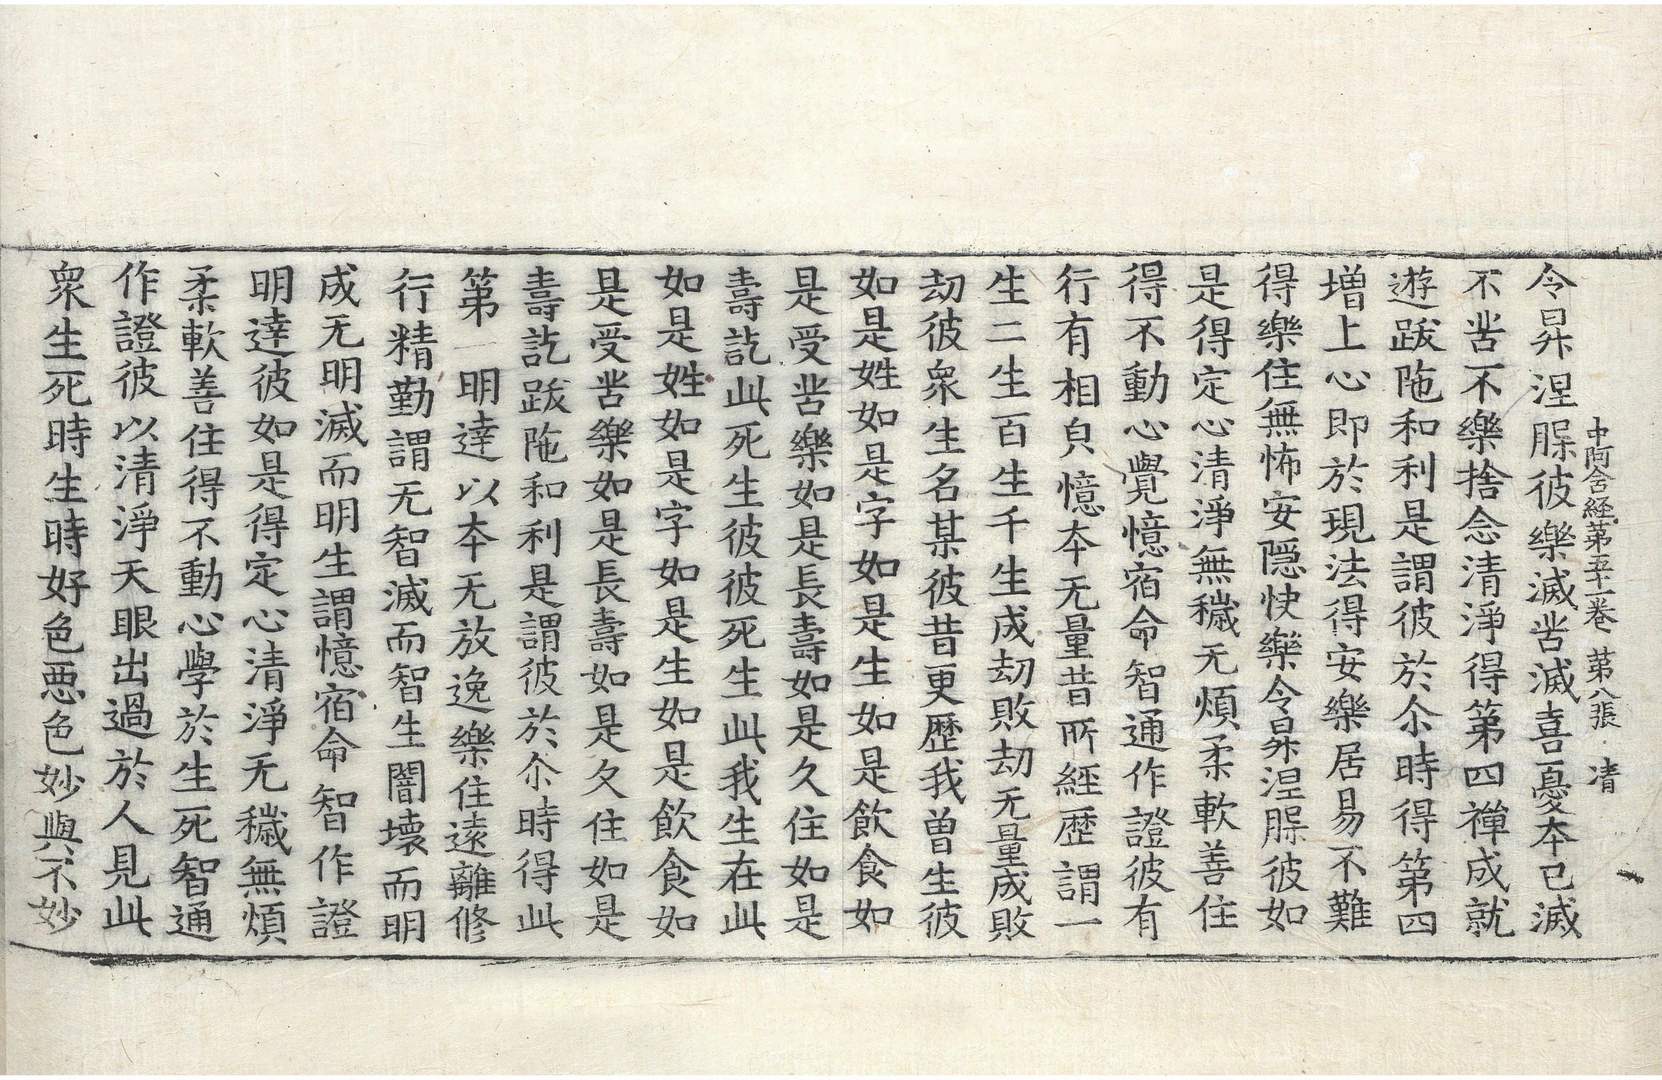 中阿含経第五十一巻 第八張 清
令昇涅脲彼樂滅苦滅喜憂本已滅
不苦不樂捨念清淨得第四禪成就
遊跋陁和利是謂彼於尒時得第四
增上心即於現法得安樂居易不難
得樂住無怖安隠快樂令昇涅脲彼如
是得定心清淨無穢无煩柔軟善住
得不動心覺憶宿命智通作證彼有
行有相皃憶夲无量昔所經歷謂一
生二生百生千生成刧敗刧无量成敗
刧彼衆生名某彼昔更歷我曾生彼
如是姓如是字如是生如是飲食如
是受苦樂如是長壽如是久住如是
壽訖此死生彼彼死生此我生在此
如是姓如是字如是生如是飲食如
是受苦樂如是長壽如是久住如是
壽訖跋陁和利是謂彼於尒時得此
第一明達以夲无放逸樂住遠離修
行精勤謂无智滅而智生闇壞而明
成无明滅而明生謂憶宿命智作證
明達彼如是得定心清淨无穢無煩
柔軟善住得不動心學於生死智通
作證彼以清淨天眼出過於人見此
衆生死時生時好色悪色妙與不妙